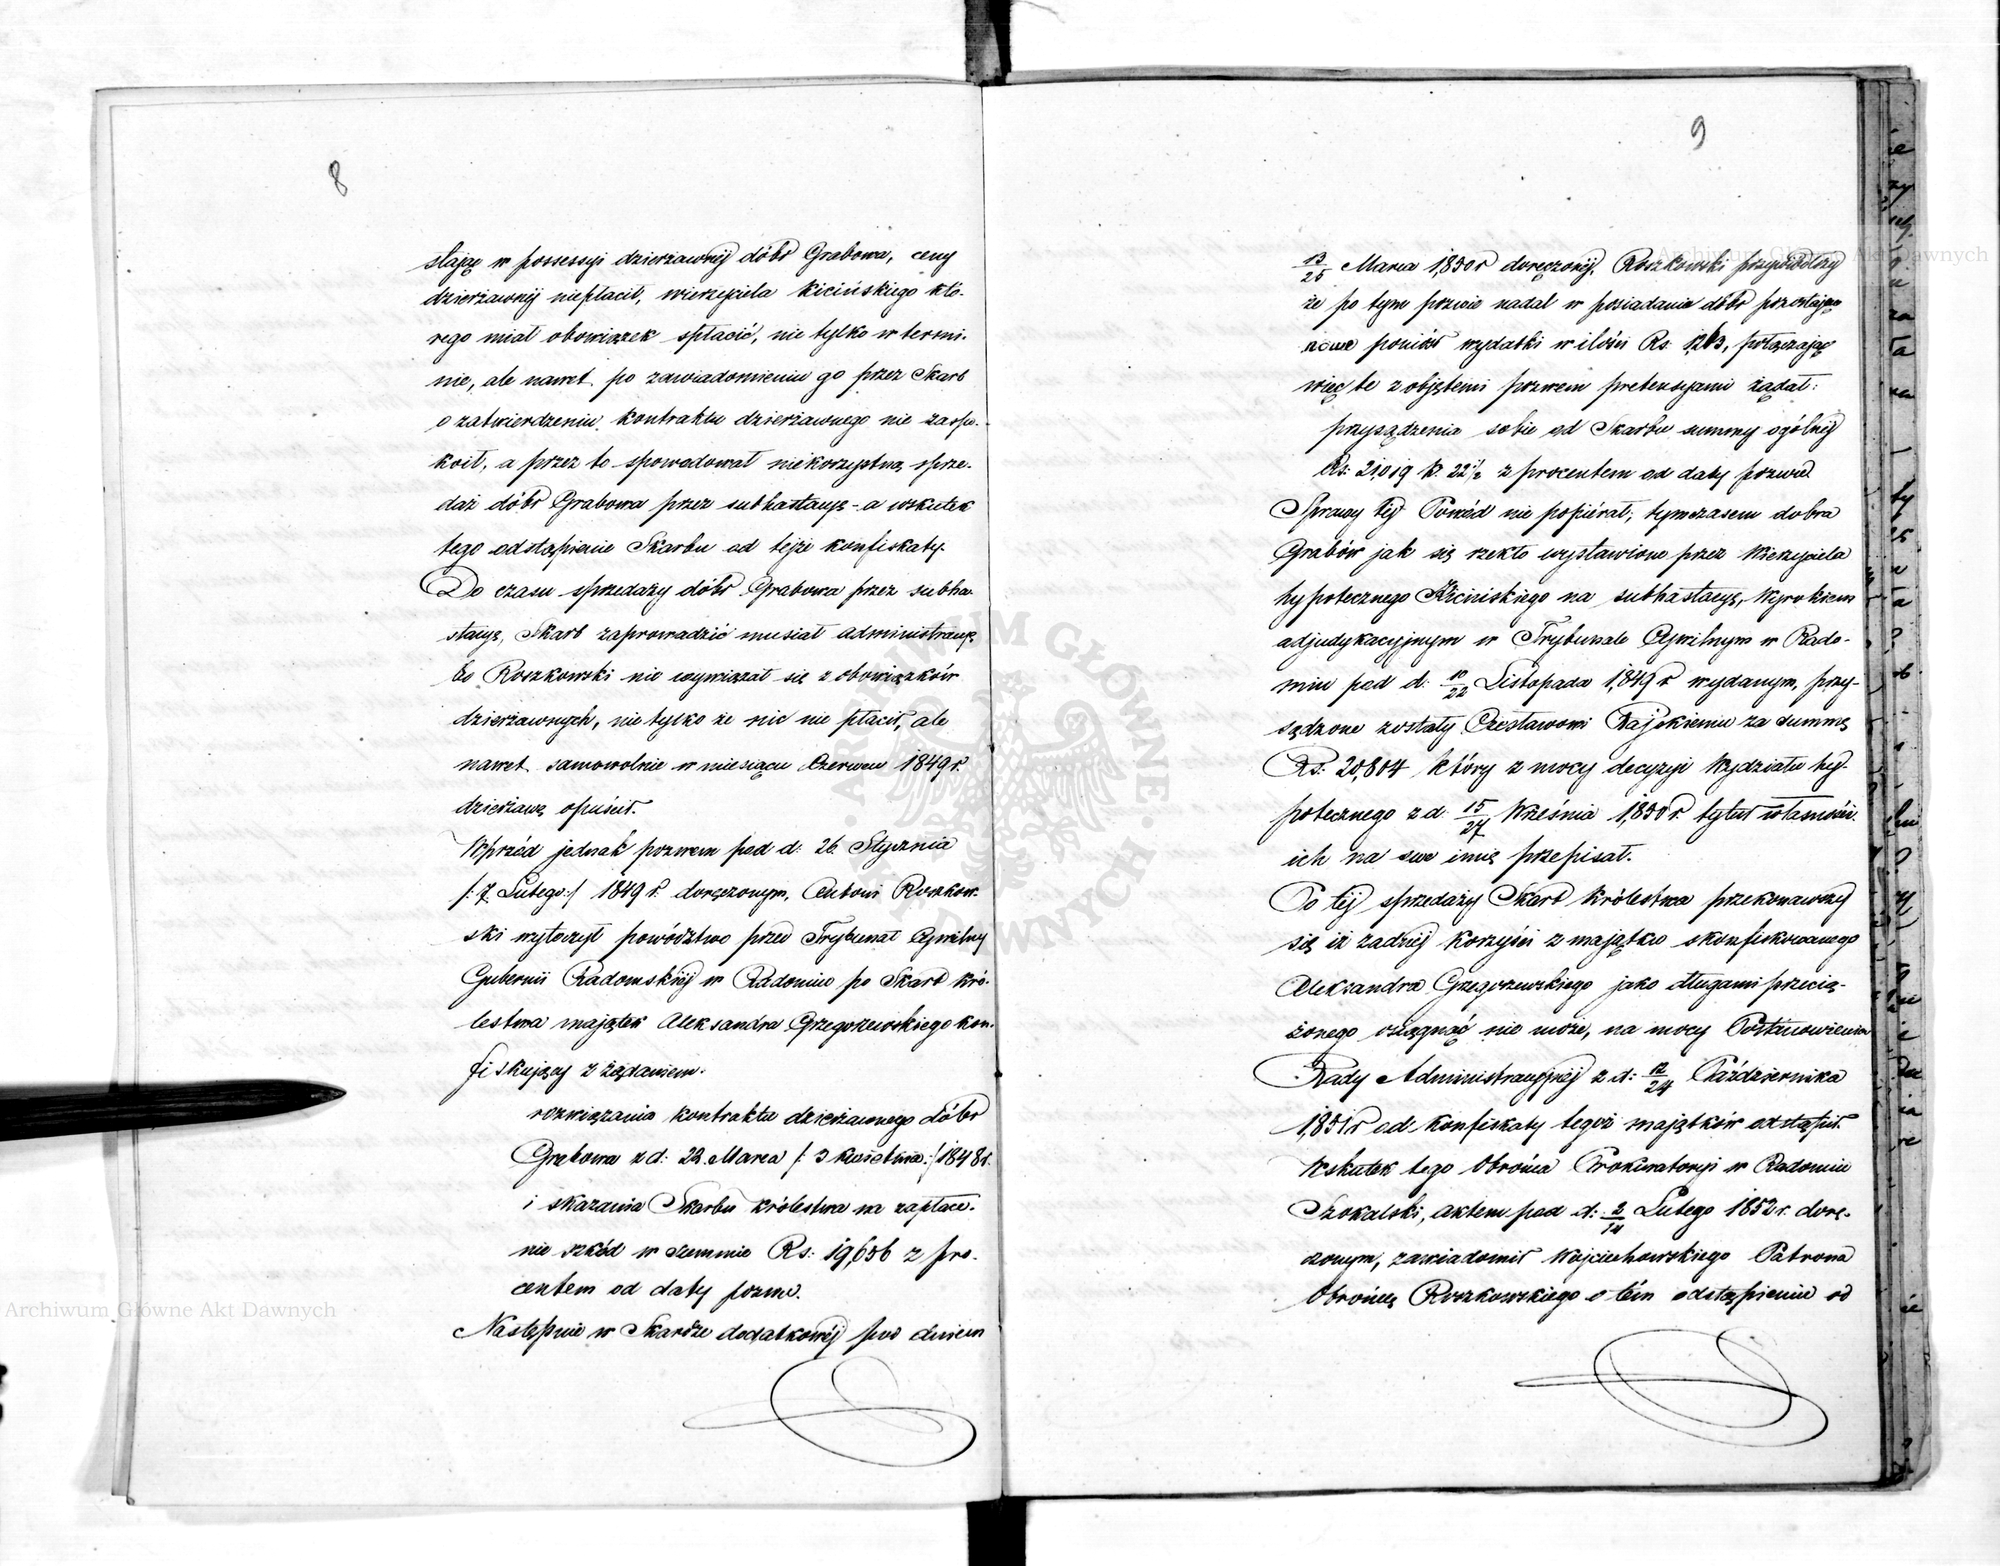 8
stając w possessyi dzierżawnéj dóbr Grabowa, ceny
dzierżawnéj niepłacił, wierzyciela Kicińskiego któ-
rego miał obowiązek spłacić, nie tylko w termi-
nie, ale nawet po zawiadomieniu go przez Skarb
o zatwierdzeniu kontraktu dzierżawnego nie zaspo-
koił, a przez to spowodował niekorzystną sprze-
daż dóbr Grabowa przez subhastacyę - a wskutek
tego odstąpienie Skarbu od tejże konfiskaty.
Do czasu sprzedaży dóbr Grabowa przez subha-
stacyę, Skarb zaprowadzić musiał administracyę
bo Roszkowski nie wywiązał się z obowiązków
dzierżawnych, nie tylko że nic nie płacił, ale
nawet samowolnie w miesiącu Czerwcu 1849 r.
dzierżawę opuścił.
Wprzód jednak pozwem pod d: 26 Stycznia
/: 7 Lutego :/ 1849 r. doręczonym, Antoni Roszkow-
ski wytoczył powództwo przed Trybunał Cywilny
Gubernii Radomskiéj w Radomiu po Skarb Kró-
lestwa majątek Aleksandra Grzegorzewskiego kon-
fiskujący z żądaniem.
rozwiązania kontraktu dzierżawnego dóbr
Grabowa z d: 22 Marca /: 3 Kwietnia :/ 1848 r.
i skazania Skarbu Królestwa na zapłace-
nie szkód w summie Rs: 19,656 z pro-
centem od daty pozwu.
Następnie w Skardze dodatkowéj pod dniem
9
13/25 Marca 1850 r doręczonéj, Roszkowski przywodząc
że po tym pozwie nadal w posiadaniu dóbr pozostając
nowe poniósł wydatki w ilości Rs: 1263, połączając
więc te z objętemi pozwem pretensyami żądał:
przysądzenia sobie od Skarbu summy ogólnéj
Rs: 21019 k. 22 1/2 z procentem od daty pozwu.
Sprawy téj Powód nie popiérał; tymczasem dobra
Grabów jak się rzekło wystawione przez Wierzyciela
hypotecznego Kicińskiego na subhastacyę, Wyrokiem
adjudykacyjnym w Trybunale Cywilnym w Rado-
miu pod d: 10/22 Listopada 1849 r wydanym, przy-
sądzone zostały Czesławowi za summę
Rs: 20,804 który z mocy decyzyi Wydziału hy-
potecznego z d: 15/27 Września 1850 r. tytuł własności
ich na swe imię przepisał.
Po téj sprzedaży Skarb Królestwa przekonawszy
się iż żadnéj korzyści z majątku skonfiskowanego
Aleksandra Grzegorzewskiego jako długami przecią-
żonego osiągnąć nie może, na mocy Postanowienia
Rady Administracyjnéj z d: 12/24 Października
1851 r od konfiskaty tegoż majątków odstąpił.
Wskutek tego Obrońca Prokuratoryi w Radomiu
Szokalski, aktem pod d: 2/14 Lutego 1852 r. dorę-
czonym, zawiadomił Wojciechowskiego Patrona
Obrońcę Roszkowskiego o tém odstąpieniu od
Archiwum Główne Akt Dawnych
Archiwum Główne Akt Dawnych
ARCHIWUM GŁÓWNE AKT DAWNYCH